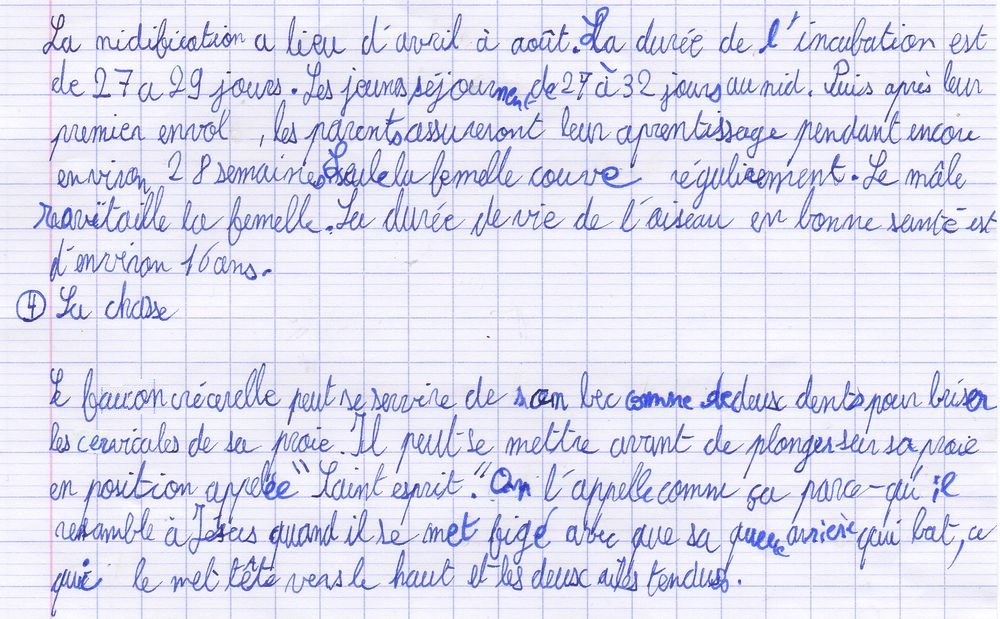 La nidification a lieu d'avril à août. La durée de l'incubation est
de 27 a 29 jours. Les jeunes séjournent de 27 à 32 jours au nid. Puis après leur
premier envol, les parents assureront leur aprentissage pendant encore
environ 28 semaines. Seule la femelle couve régulièrement. Le mâle
ravitaille la femelle. La durée de vie de l'oiseau en bonne santé est
d'environ 16 ans.
④ La chasse
Le faucon crécerelle peut se servire de son bec comme de deux dents pour briser
les cervicales de sa proie. Il peut se mettre avant de plonger sur sa proie
en position appelée "Saint esprit". On l'appelle comme ça parce-qu'il
resemble à Jésus quand il se met figé avec que sa queue arrière qui bat, ce
qui le met tête vers le haut et les deux ailes tendus.